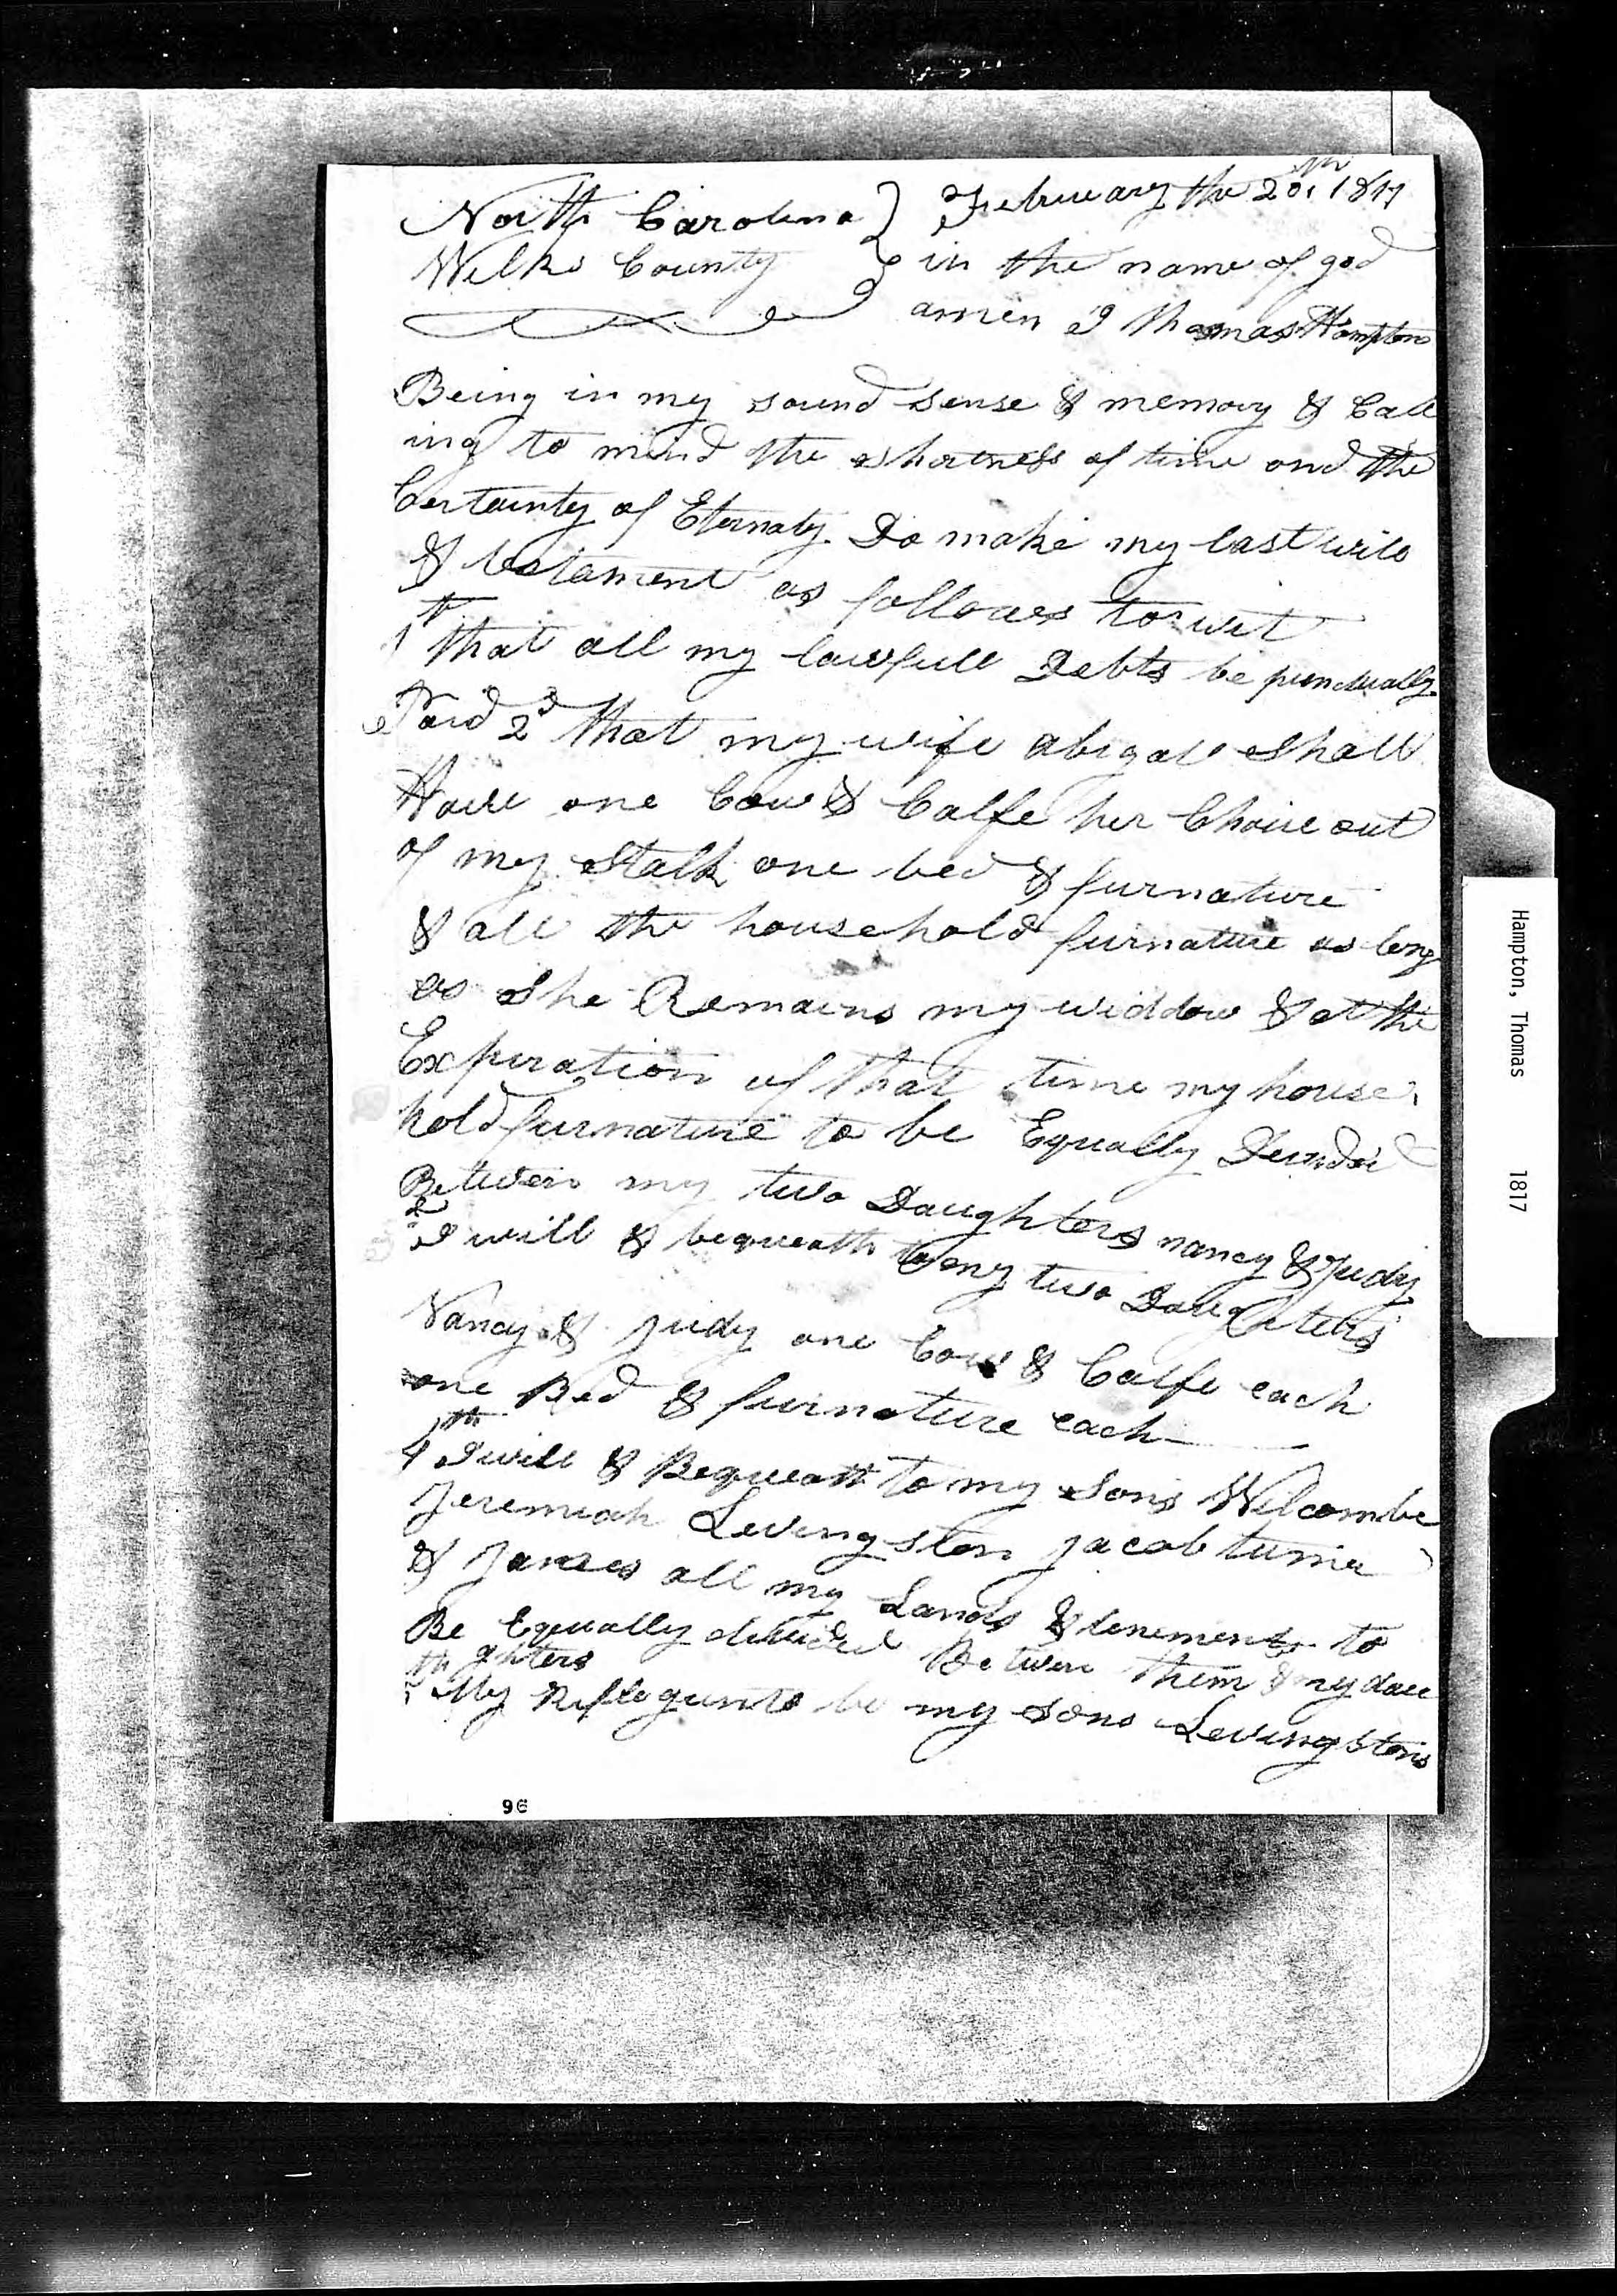 North Carolina } February the 20th 1817
Wilks County } in the name of god
amen I thomas Hampton
Being in my sound sense & memory & Call
ing to mind the shortness of time and the
Certainty of Eternaty Do make my last will
& testament as follows to wit
1st that all my lawfull Debts be punctually
Paid 2d that my wife abigal shall
Have one Cow & Calfe her Choice out
of my Stalk one bed & furnature
& all the household furnature as long
as She Remains my widdow & at the
Expiration of that time my house
hold furnature to be Equally
Between my two Daughters nancy & Judy
I will & bequeath to my two Daughters
Nancy & Judy one Cow & Calfe each
one Bed & furnature each
4th I will & Bequeath to my Sons Welcombe
Jeremiah Levingston Jacob turner
& James all my Lands & tenements to
Be Equally divided Between them & my dau
ghters
My Rifle gun to be my sons Levingstons
96
Hampton, Thomas 1817